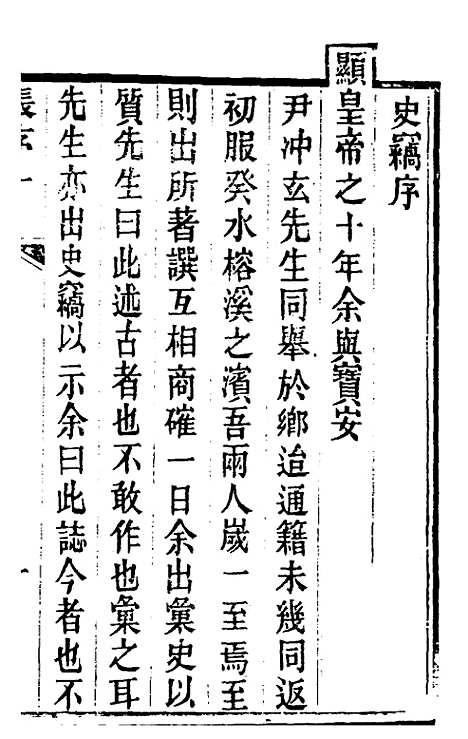 史竊序
顯皇帝之十年余與寶安
尹冲玄先生同舉於鄉迨通籍未幾同返
初服癸水榕溪之濱吾兩人歲一至焉至
則出所著譔互相商確一日余出彙史以
質先生曰此述古者也不敢作也彙之耳
先生亦出史竊以示余曰此誌今者也不